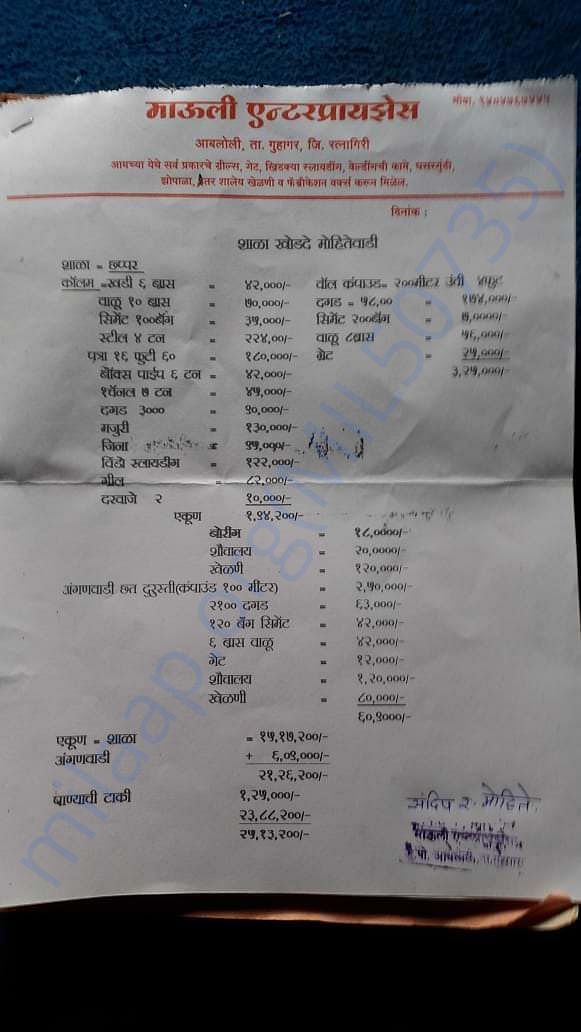 माऊली एन्टरप्रायझेस
आबलोली, ता. गुहागर, जि. रत्नागिरी
आमच्या येथे सर्व प्रकारचे ग्रील्स, गेट, खिडक्या स्लायडींग, वेल्डींगची कामे, घसरगुंडी,
झोपाळा, इतर शालेय खेळणी व फॅब्रीकेशन वर्क्स करुन मिळेल.
दिनांक :
शाळा खोडदे मोहितेवाडी
शाळा = छप्पर
कॉलम = खडी ६ ब्रास = ४२,०००/- वॉल कंपाउड= २००मीटर उंची ४फुट
वाळू १० ब्रास = ७०,०००/- दगड = ५८,०० = १७४,०००/-
सिमेंट १००बॅग = ३५,०००/- सिमेंट २००बॅग = ७,००००/-
स्टील ४ टन = २२४,००/- वाळू ८ब्रास = ५६,०००/-
पत्रा १६ फूटी ६० = १८०,०००/- गेट = २५,०००/-
बॉक्स पाईप ६ टन = ४२,०००/- ३,२५,०००/-
१चॅनल ७ टन = ४५,०००/-
दगड ३००० = ९०,०००/-
मजुरी = १३०,०००/-
जिना =
विंडो स्लायडींग = १२२,०००/-
ग्रील = ८२,०००/-
दरवाजे २ १०,०००/-
एकूण १,९४,२००/-
बोरींग = १८,००००/-
शौचालय = २०,००००/-
खेळणी = १२०,०००/-
अंगणवाडी छत दुरुस्ती(कंपाउंड १०० मीटर) = २,५०,०००/-
२१०० दगड = ६३,०००/-
१२० बॅग सिमेंट = ४२,०००/-
६ ब्रास वाळू = ४२,०००/-
गेट = १२,०००/-
शौचालय = १,२०,०००/-
खेळणी = ८०,०००/-
६०,९०००/-
एकूण = शाळा = १५,१७,२००/-
अंगणवाडी + ६,०९,०००/-
२१,२६,२००/-
पाण्याची टाकी १,२५,०००/-
२३,८८,२००/-
२५,१३,२००/-
संदिप र. मोहिते
milaap.org(MIL50735)